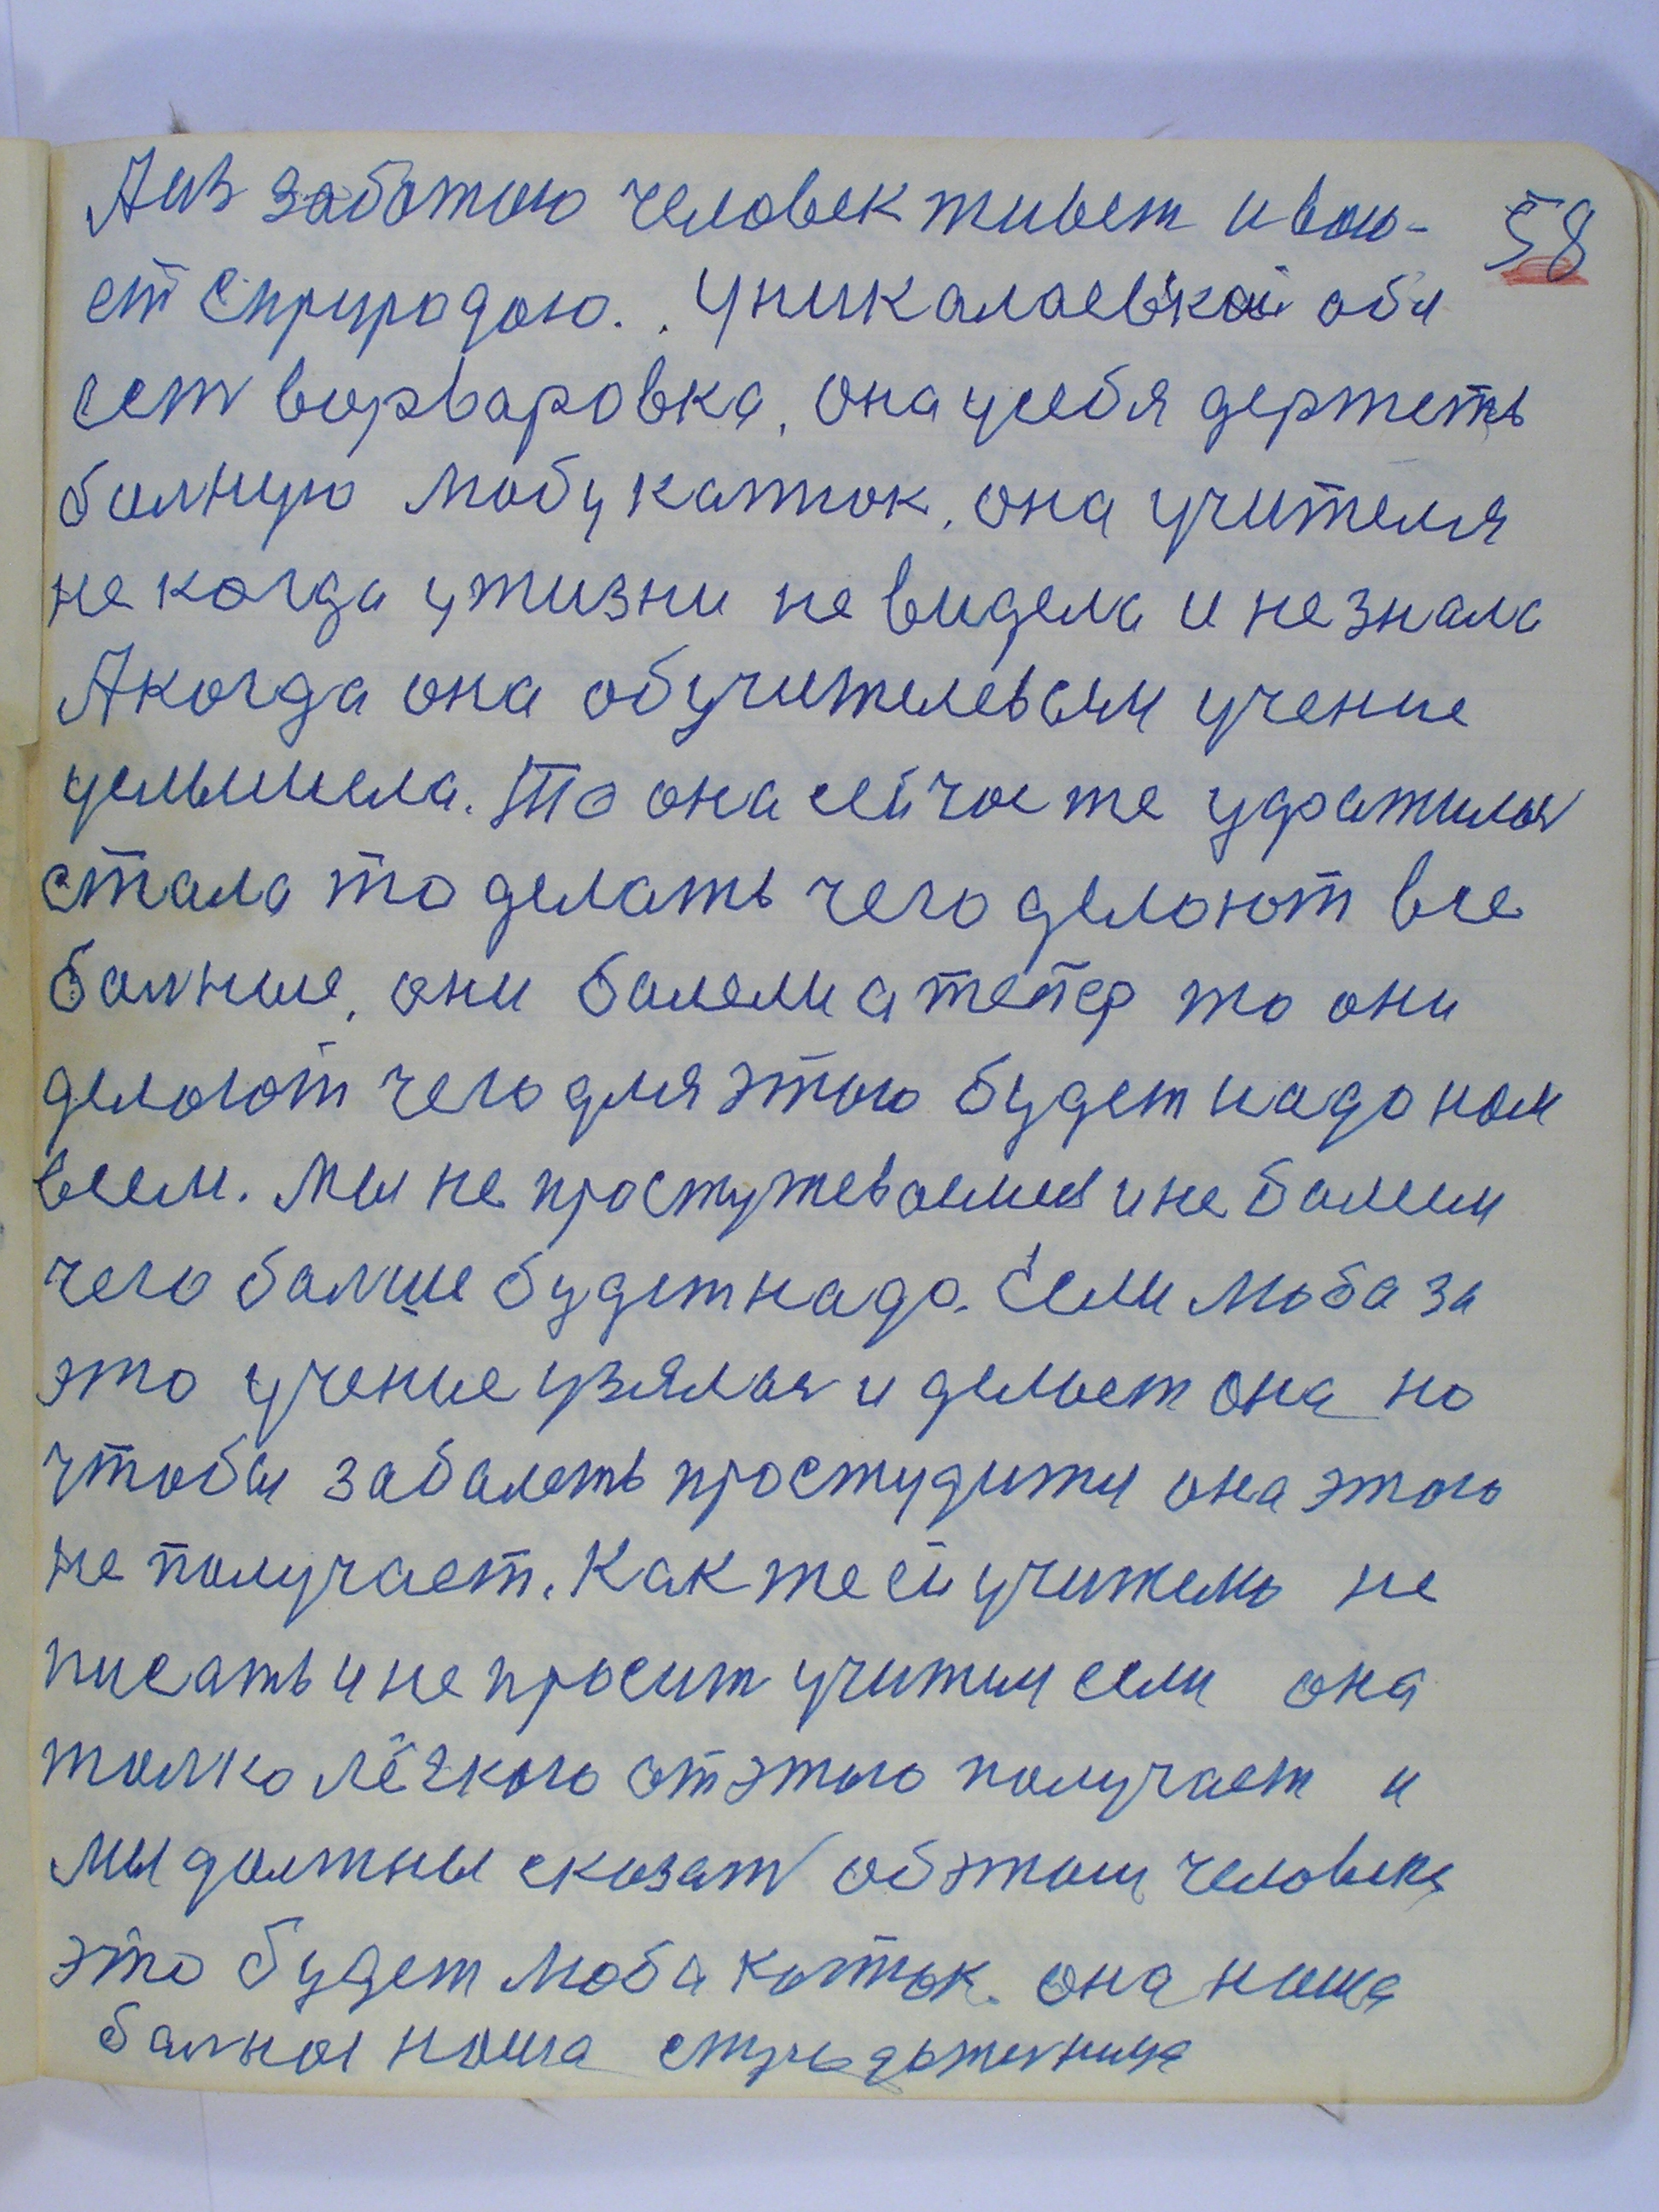 Аиз заботою человек живет и вою-
58
ет сприродою.. Уникалаевкой обл
сет ворваровка, она усебя держеть
болную Любу каток, она учителя
не когда ужизни не видела и не знала
Акогда она обучителевсям учение
услышела. То она сейчас же удражилыя
стала то делать чего делоют все
болные, они болели а тепер то они
делоют чего для этого будет надо ном
всем. Мы не простужеваемся и не болеем
чего болше будетнадо. Если Люба за
это учение узялыя и делоет она но
чтобы заболеть простудитя она этого
не получает. Как же ей учитель не
писать и не просит учитея если она
толко лёгкого отэтого получает и
мы должны сказат обэтом человеке
это будет Люба каток. она ноша
болноя ноша